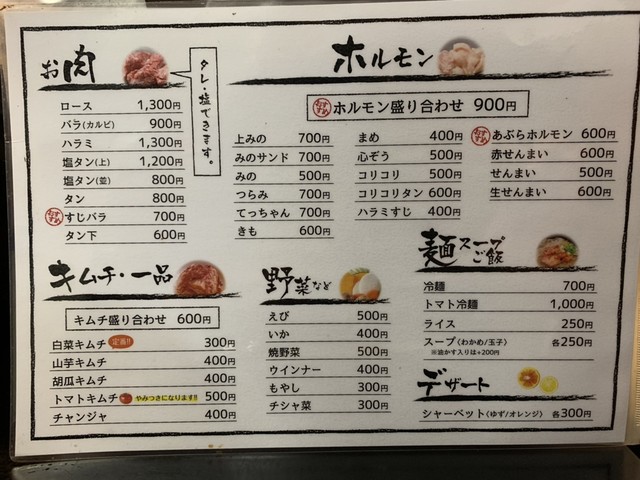 お肉
タレ・塩できます。
ロース 1,300円
バラ(カルビ) 900円
ハラミ 1,300円
塩タン(上) 1,200円
塩タン(並) 800円
タン 800円
おすすめ すじバラ 700円
タン下 600円
ホルモン
おすすめ ホルモン盛り合わせ 900円
上みの 700円
みのサンド 700円
みの 500円
つらみ 700円
てっちゃん 700円
きも 600円
まめ 400円
心ぞう 500円
コリコリ 500円
コリコリタン 600円
ハラミすじ 400円
おすすめ あぶらホルモン 600円
赤せんまい 600円
せんまい 500円
生せんまい 600円
キムチ・一品
キムチ盛り合わせ 600円
白菜キムチ 定番!! 300円
山芋キムチ 400円
胡瓜キムチ 400円
トマトキムチ やみつきになります!! 500円
チャンジャ 400円
野菜など
えび 500円
いか 400円
焼野菜 500円
ウインナー 400円
もやし 300円
チシャ菜 300円
麺スープご飯
冷麺 700円
トマト冷麺 1,000円
ライス 250円
スープ〈わかめ/玉子〉 各250円
※油かす入りは+200円
デザート
シャーベット〈ゆず/オレンジ〉 各300円